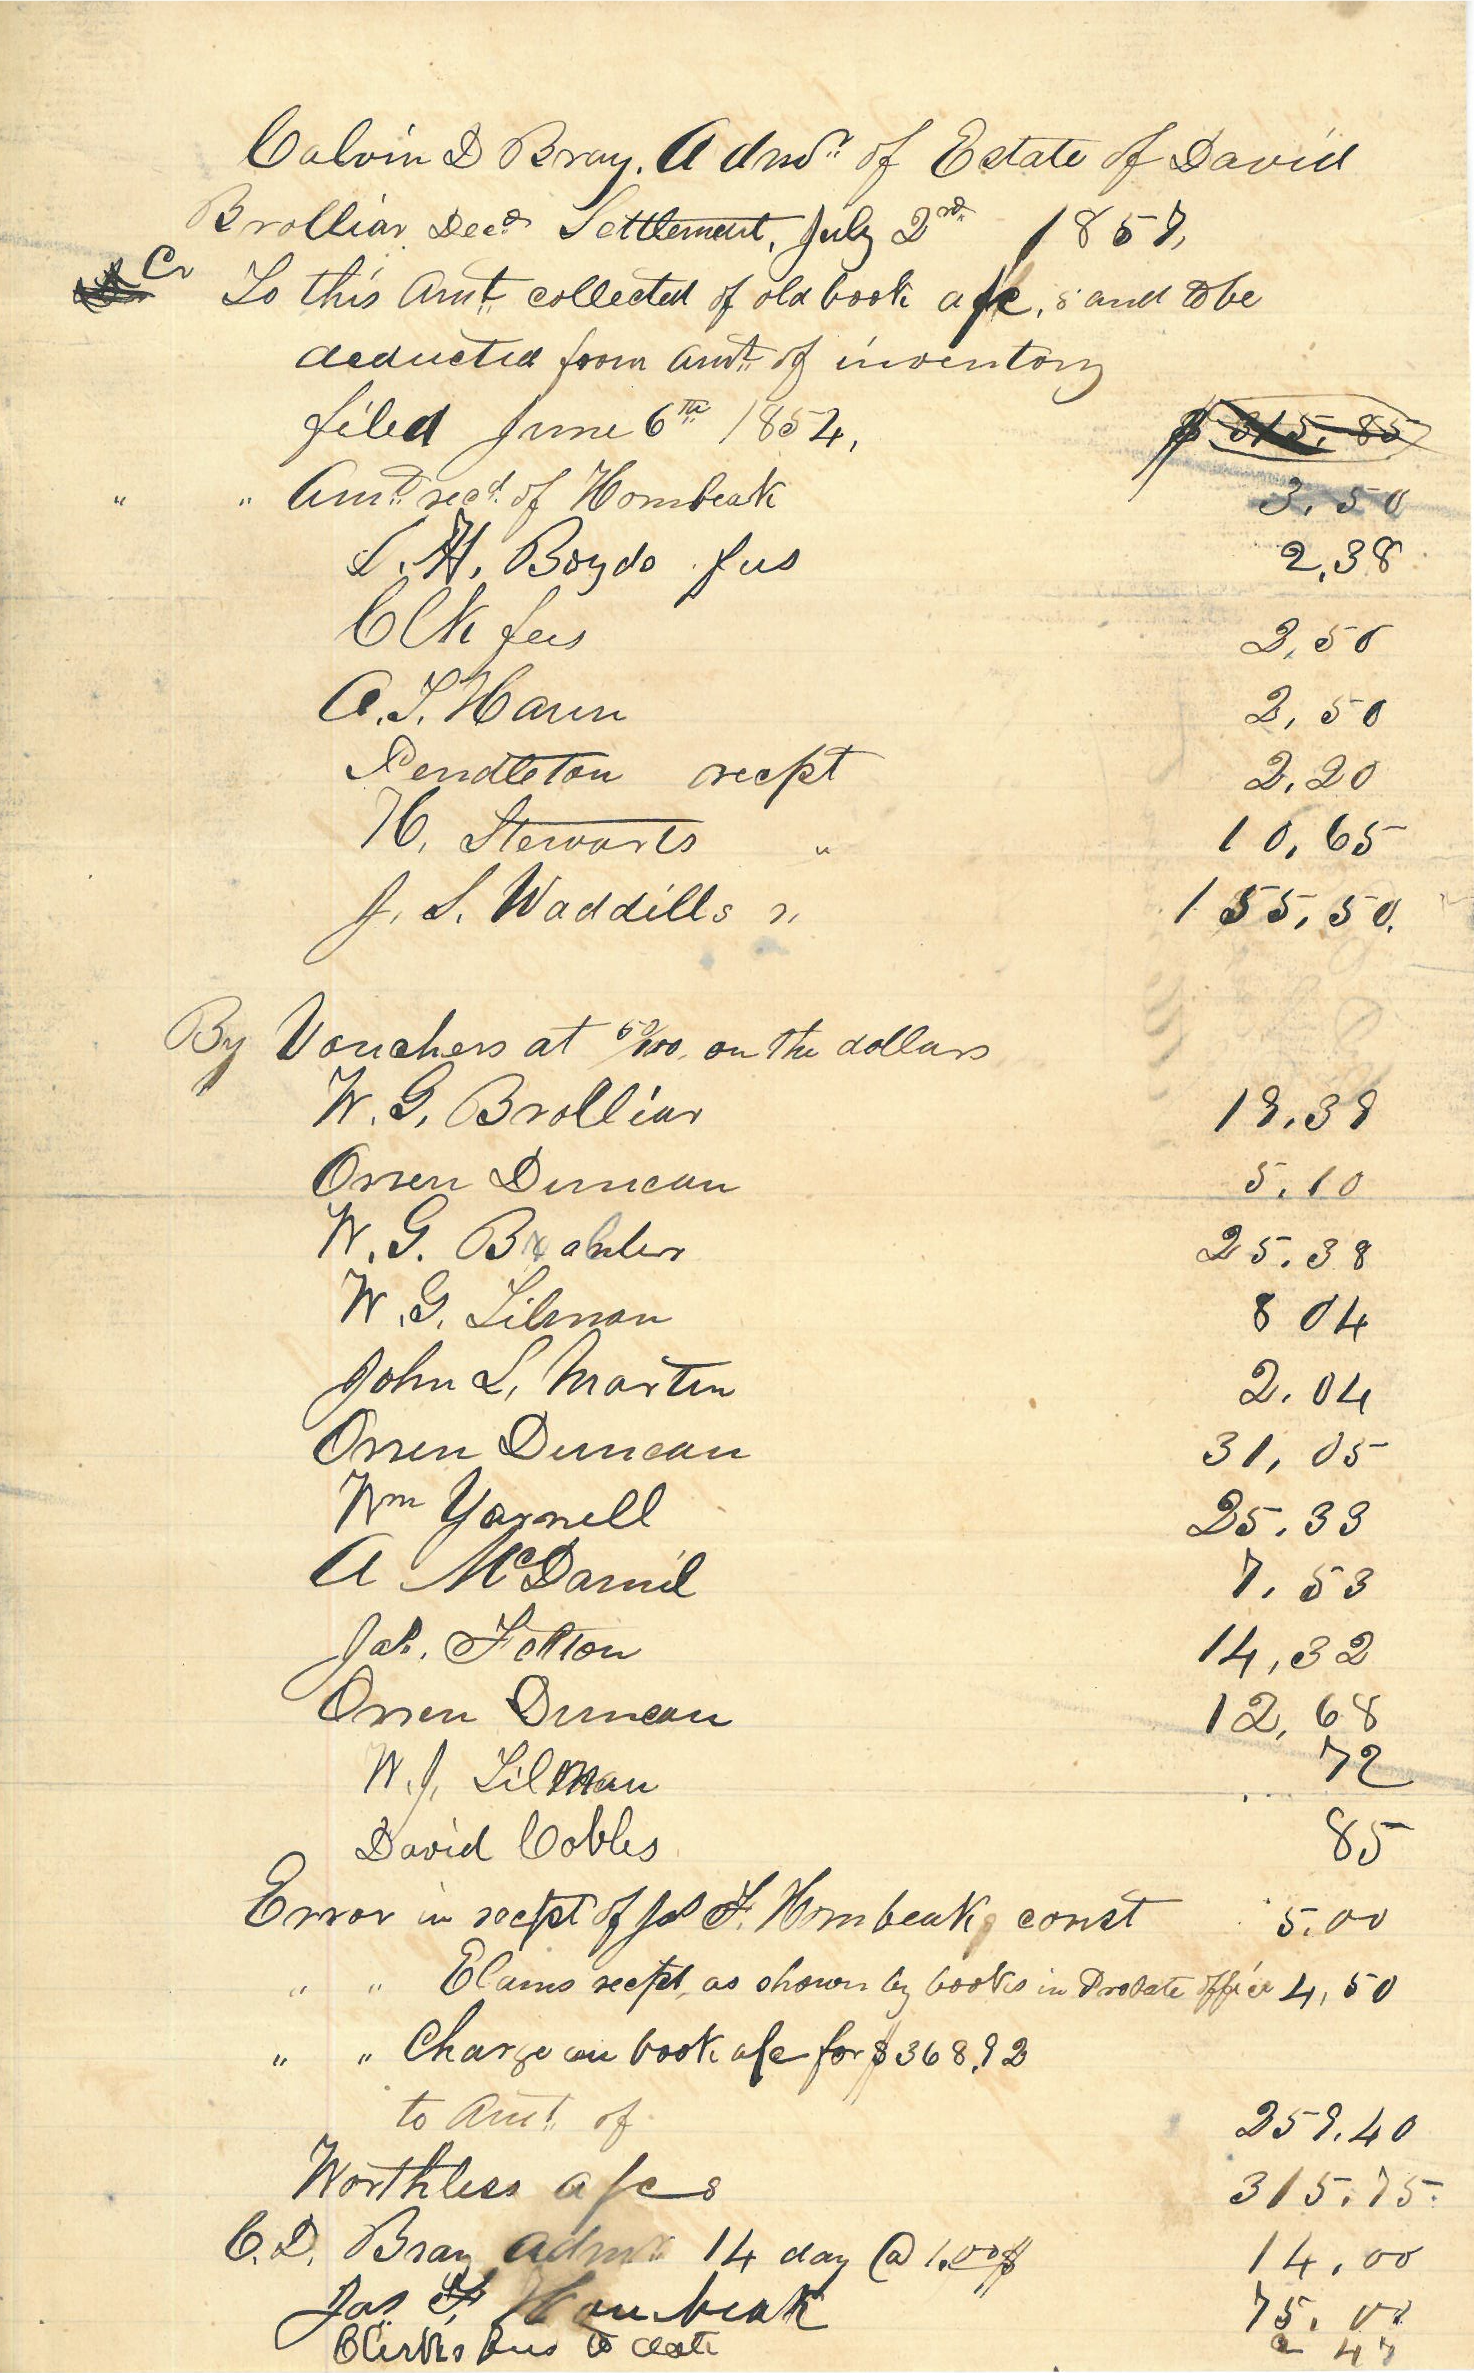 Calvin D Bray. Admr. of Estate of David
Brolliar Decd. Settlement, July 2nd 1857,
Cr To this Amt. collected of old book a/c, s and to be
deducted from amt. of inventory
filed June 6th 1854, $ 315.85
" " Amt. recd. of Hornbeak 3.50
S. H. Boyds fees 2,38
Clk fees 2,50
A. S. Harun 2,50
Pendleton recpt 2.20
H. Stewarts " 10,65
J. S. Waddills " 155,50.
By Vouchers at 50/100 on the dollars
W. G. Brolliar 19.39
Orren Duncan 5.10
W. G. 25.38
W. G. Lilman 8 04
John L, Martin 2.04
Orren Duncan 31,05
Wm Yarnell 25.33
A McDaniel 7.53
Jas. Felton 14,32
Orren Duncan 12,68
W. J. Lilman 72
David Cobles 85
Error in recpt of Jas F. Hornbeak, const 5.00
" " Elams recpt, as shown by books in Probate office 4,50
" " Charge on book a/c for $368.92
to Amt. of 259.40
Worthless a/cs 315.75.
C. D. Bray admr 14 day @ 1.00$ 14.00
Jas F. Hornbeak 75.00
Clerks fees to date 2 47